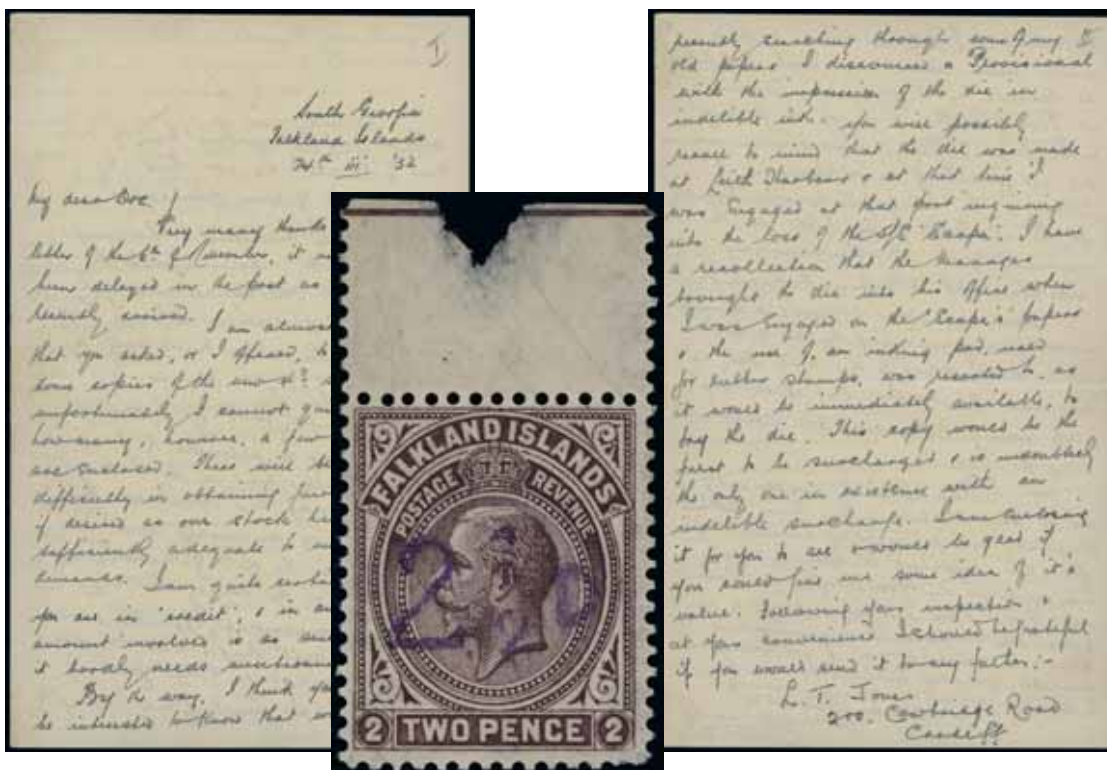 I
South Georgia
Falkland Islands
24th iii '32
My dear
Very many thanks
letter of the 6th of November, it
been delayed in the post as
recently arrived. I am almost
that you asked, or I offered, to
some copies of the new
unfortunately I cannot
how many, however, a few
are enclosed. There will be
difficulty in obtaining
if desired as our stock
sufficiently adequate to
demands. I am quite
you are in 'credit', & in
amount involved is so
it hardly needs
By the way, I think you
be interested to know that
FALKLAND ISLANDS
POSTAGE REVENUE
2
2 TWO PENCE 2
recently searching through some of my II
old papers I discovered a Provisional
with the impression of the die in
indelible ink. You will possibly
recall to mind that the die was made
at Leith Harbour & at that time I
was engaged at that port inquiring
into the loss of the S/C 'Scapa'. I have
a recollection that the Manager
brought the die into his office when
I was engaged on the 'Scapa's' papers
& the use of, an inking pad, used
for rubber stamps, was resorted to, as
it would be immediately available, to
try the die. This copy would be the
first to be surcharged & is undoubtedly
the only one in existence with an
indelible surcharge. I am enclosing
it for you to see & would be glad if
you could give me some idea of it's
value. Following your inspection &
at your convenience I should be grateful
if you would send it to my father:-
L. T. Jones
200, Cowbridge Road
Cardiff